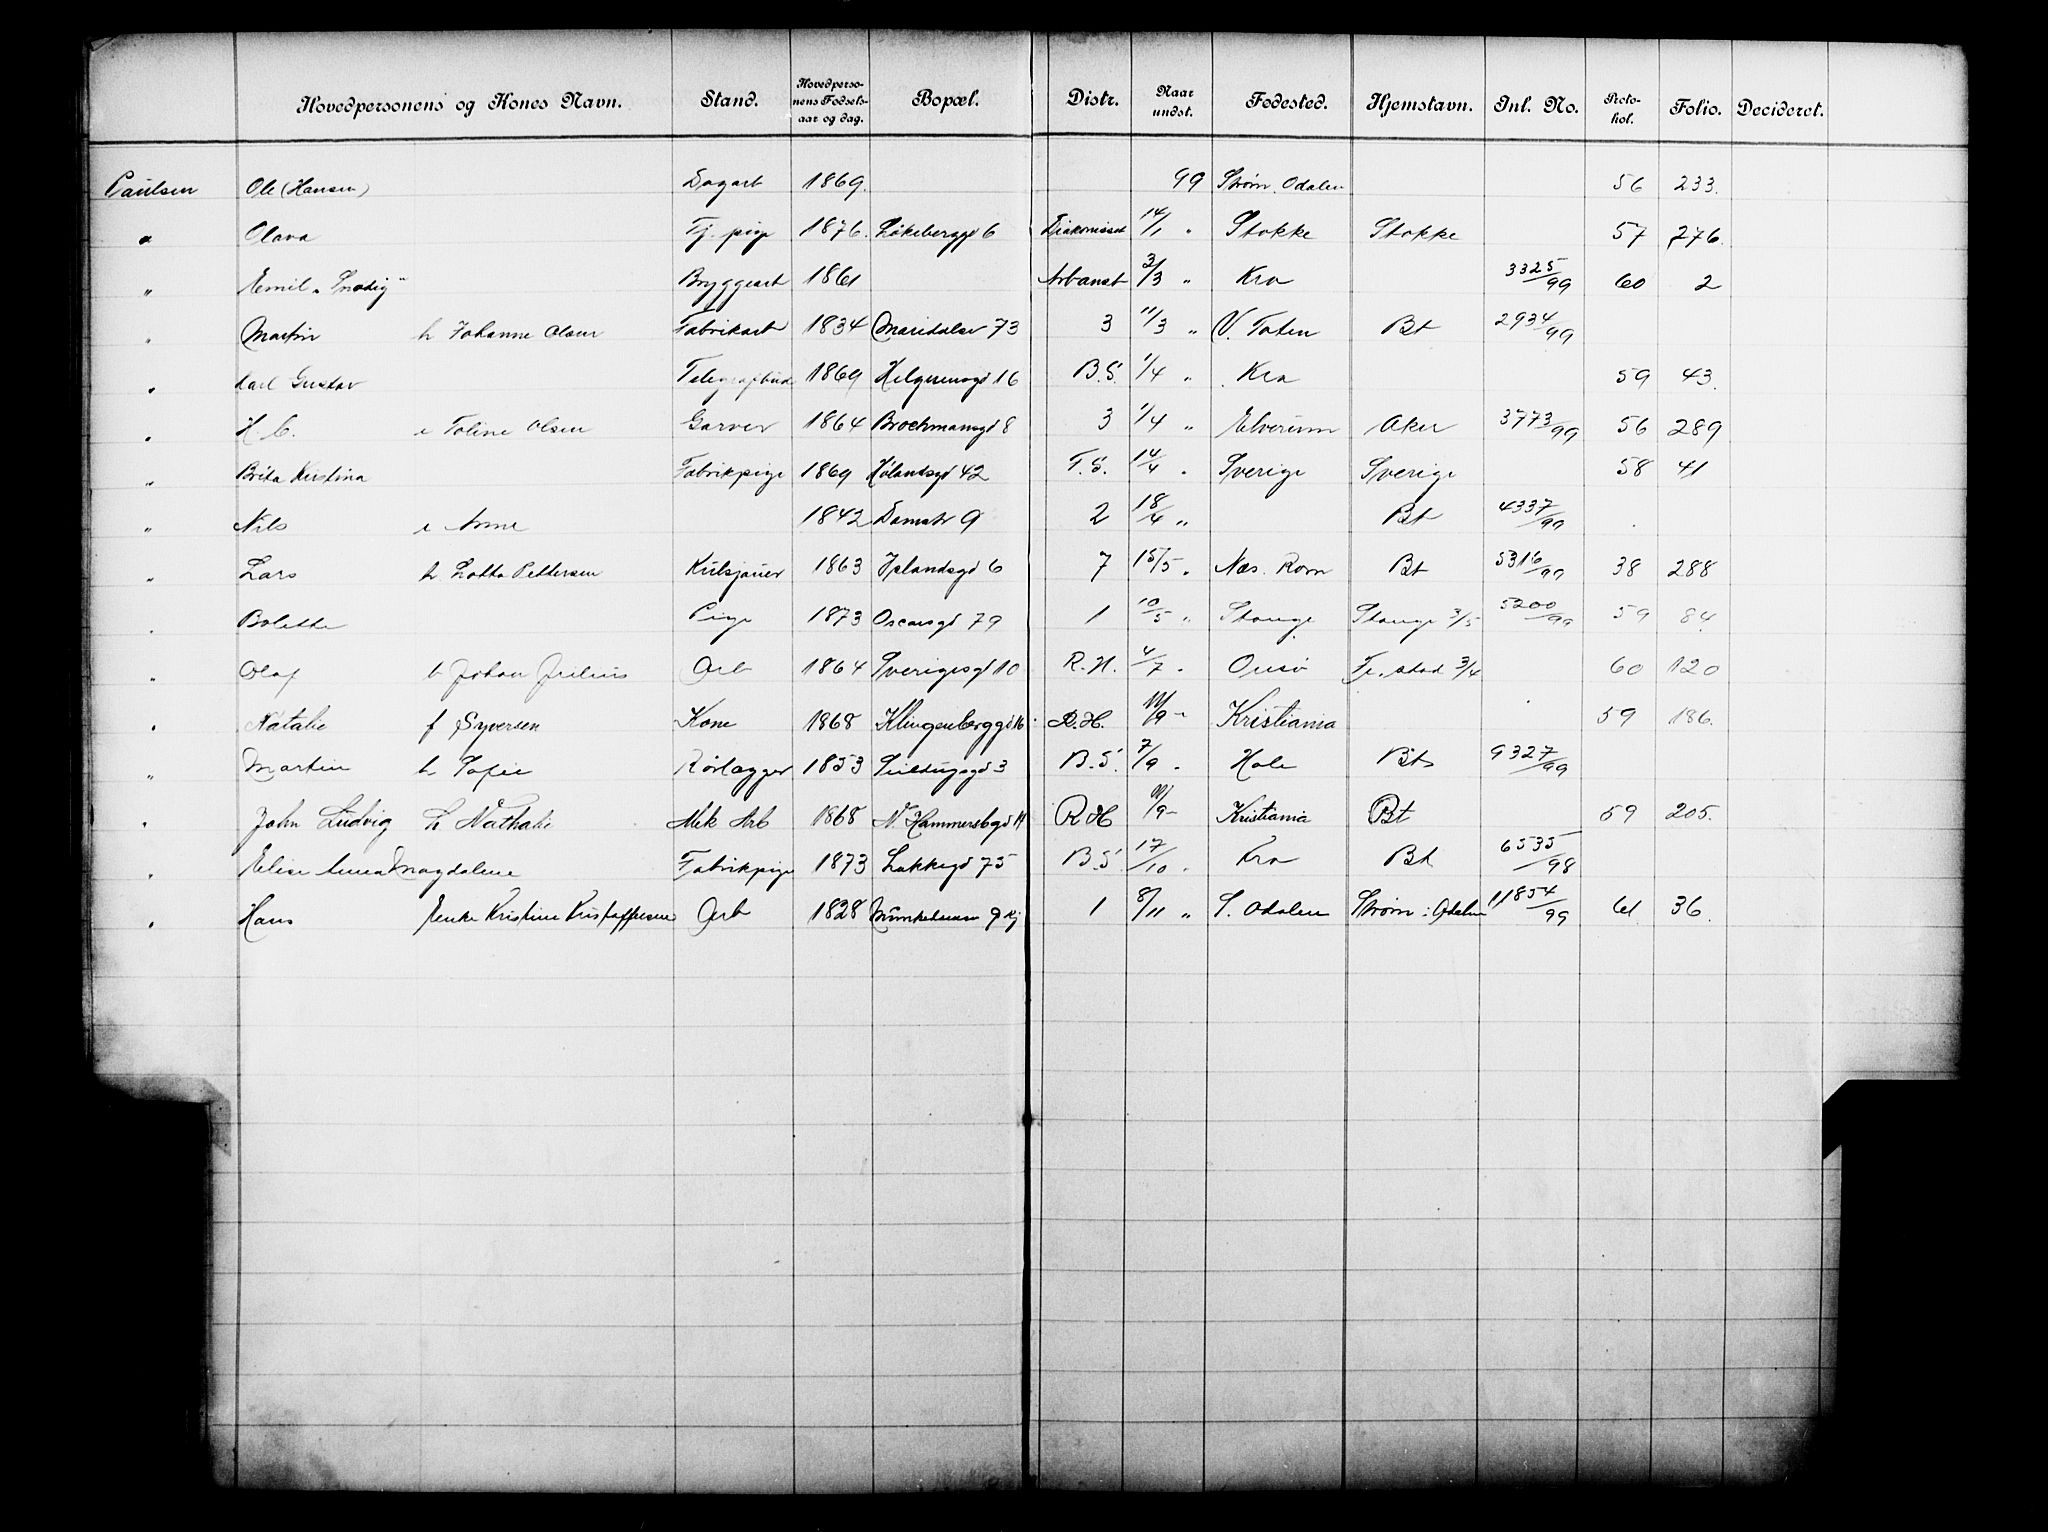 Hovedpersonens og Kones Navn. Stand. Hovedpersonens Fødselsaar og dag. Bopæl. Distr. Naar undst. Fødested. Hjemstavn. Inl. No. Protokol. Folio. Decideret.
Paulsen Ole (Hansen) Dagarb 1869. 99 Strøm. Odalen 56 233.
" Olava Tj. pige 1876. Løkeberggd 6 Diakonisset 14/1 " Stokke Stokke 57 276.
" Emil "Snodig" Bryggearb 1861 Arbanst 3/3 " Kra 3325/99 60 2
" Martin h Johanne Olsen Fabrikarb 1834 Maridalsv 73 3 11/3 " V. Toten Bt 2934/99
" Karl Gustav Telegrafbud 1869 Helgesensgd 16 B.S. 1/4 " Kra 59 43.
" H C. e Toline Olsen Garver 1864 Brochmansgd 8 3 1/4 " Elverum Aker 3773/99 56 289
" Brita Kristina Fabrikpige 1869 Hølandsgd 42 T.S. 14/4 " Sverige Sverige 58 41
" Nils e Anne 1842 Damstr 9 2 18/4 " Bt 4337/99
" Lars h Lotta Pettersen Kulsjauer 1863 Islandsgd 6 7 15/5 " Næs. Rom Bt 5316/99 38 288
" Bolette Pige 1873 Oscarsgd 79 1 10/5 " Stange Stange 3/5 5200/99 59 84.
" Olaf b Johan Julius Arb 1864 Sverigesgd 10 R.H. 4/7 " Onsø Fr.stad 3/4 60 120
" Natalie f Syversen Kone 1868 Klingenberggd 16 R.H. 11/9 - Kristiania 59 186.
" Martin h Sofie Rørlægger 1853 B.S. 7/9 " Hole Bt 9327/99
" John Ludvig h Nathalie Mek Arb 1868 N. Hammersbgd 11 RH 11/9 - Kristiania Bt 59 205.
" Elise Anna Magdalene Fabrikpige 1873 Lakkegd 75 B.S 17/10 " Kra Bt 6535/98
" Hans Enke Kristine Kristoffersen Arb 1828 9 Kj 1 8/11 " S. Odalen Strøm i Odalen 11854/99 61 36.